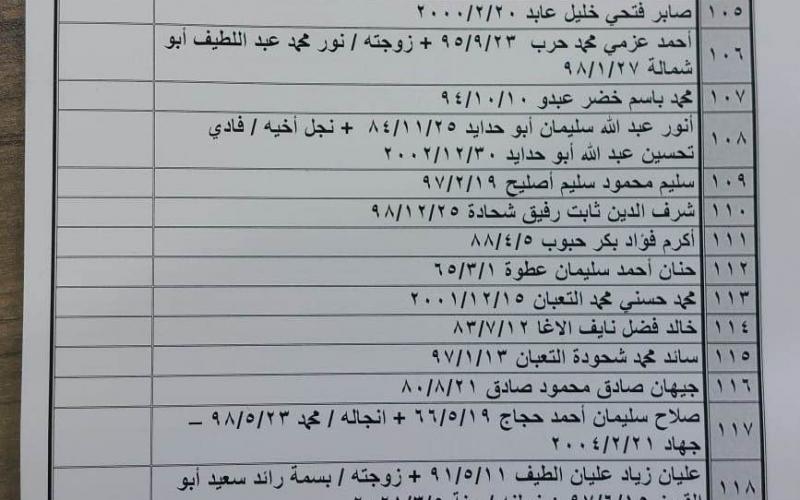 ١٠٥ صابر فتحي خليل عابد ٢٠٠٠/٢/٢٠
١٠٦ أحمد عزمي محمد حرب ٩٥/٩/٢٣ + زوجته / نور محمد عبد اللطيف أبو
شمالة ٩٨/١/٢٧
١٠٧ محمد باسم خضر عبدو ٩٤/١٠/١٠
١٠٨ أنور عبد الله سليمان أبو حدايد ٨٤/١١/٢٥ + نجل أخيه / فادي
تحسين عبد الله أبو حدايد ٢٠٠٢/١٢/٣٠
١٠٩ سليم محمود سليم أصليح ٩٧/٢/١٩
١١٠ شرف الدين ثابت رفيق شحادة ٩٨/١٢/٢٥
١١١ أكرم فؤاد بكر حبوب ٨٨/٤/٥
١١٢ حنان أحمد سليمان عطوة ٦٥/٣/١
١١٣ محمد حسني محمد التعبان ٢٠٠١/١٢/١٥
١١٤ خالد فضل نايف الاغا ٨٣/٧/١٢
١١٥ سائد محمد شحودة التعبان ٩٧/١/١٣
١١٦ جيهان صادق محمود صادق ٨٠/٨/٢١
١١٧ صلاح سليمان أحمد حجاج ٦٦/٥/١٩ + انجاله / محمد ٩٨/٥/٢٣ –
جهاد ٢٠٠٤/٢/٢١
١١٨ عليان زياد عليان الطيف ٩١/٥/١١ + زوجته / بسمة رائد سعيد أبو